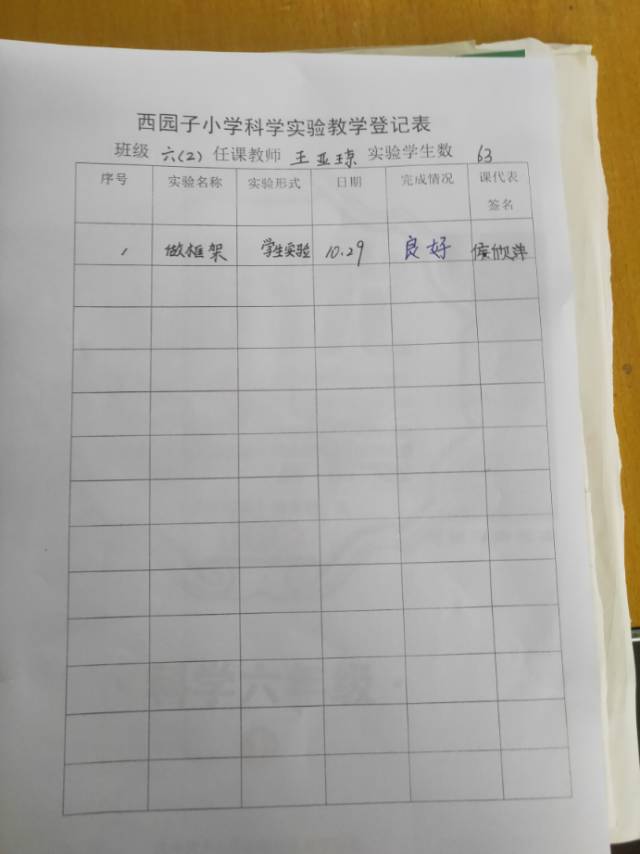 西园子小学科学实验教学登记表
班级 六(2) 任课教师 王亚琼 实验学生数 63
序号 实验名称 实验形式 日期 完成情况 课代表签名
1 做框架 学生实验 10.29 良好
科学六年级